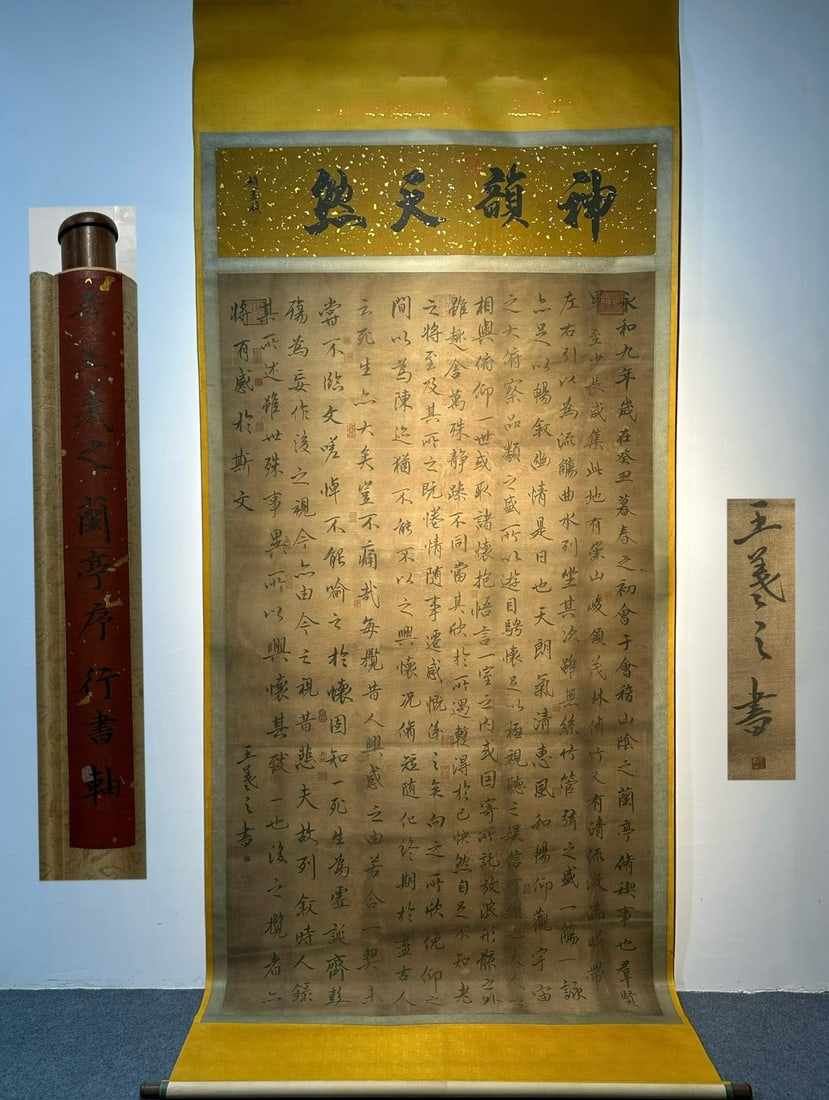 神韻天然
永和九年歲在癸丑暮春之初會于會稽山陰之蘭亭脩禊事也羣賢
畢至少長咸集此地有崇山峻領茂林脩竹又有清流激湍暎帶
左右引以為流觴曲水列坐其次雖無絲竹管弦之盛一觴一詠
亦足以暢敘幽情是日也天朗氣清惠風和暢仰觀宇宙
之大俯察品類之盛所以遊目騁懷足以極視聽之娛信可樂也夫人之
相與俯仰一世或取諸懷抱悟言一室之內或因寄所託放浪形骸之外
雖趣舍萬殊靜躁不同當其欣於所遇蹔得於己快然自足不知老
之將至及其所之既惓情隨事遷感慨係之矣向之所欣俛仰之
間以為陳迹猶不能不以之興懷況脩短隨化終期於盡古人
云死生亦大矣豈不痛哉每攬昔人興感之由若合一契未
嘗不臨文嗟悼不能喻之於懷固知一死生為虛誕齊彭
殤為妄作後之視今亦由今之視昔悲夫故列敘時人錄
其所述雖世殊事異所以興懷其致一也後之攬者亦
將有感於斯文
王羲之書
王羲之書
晉王羲之蘭亭序行書軸